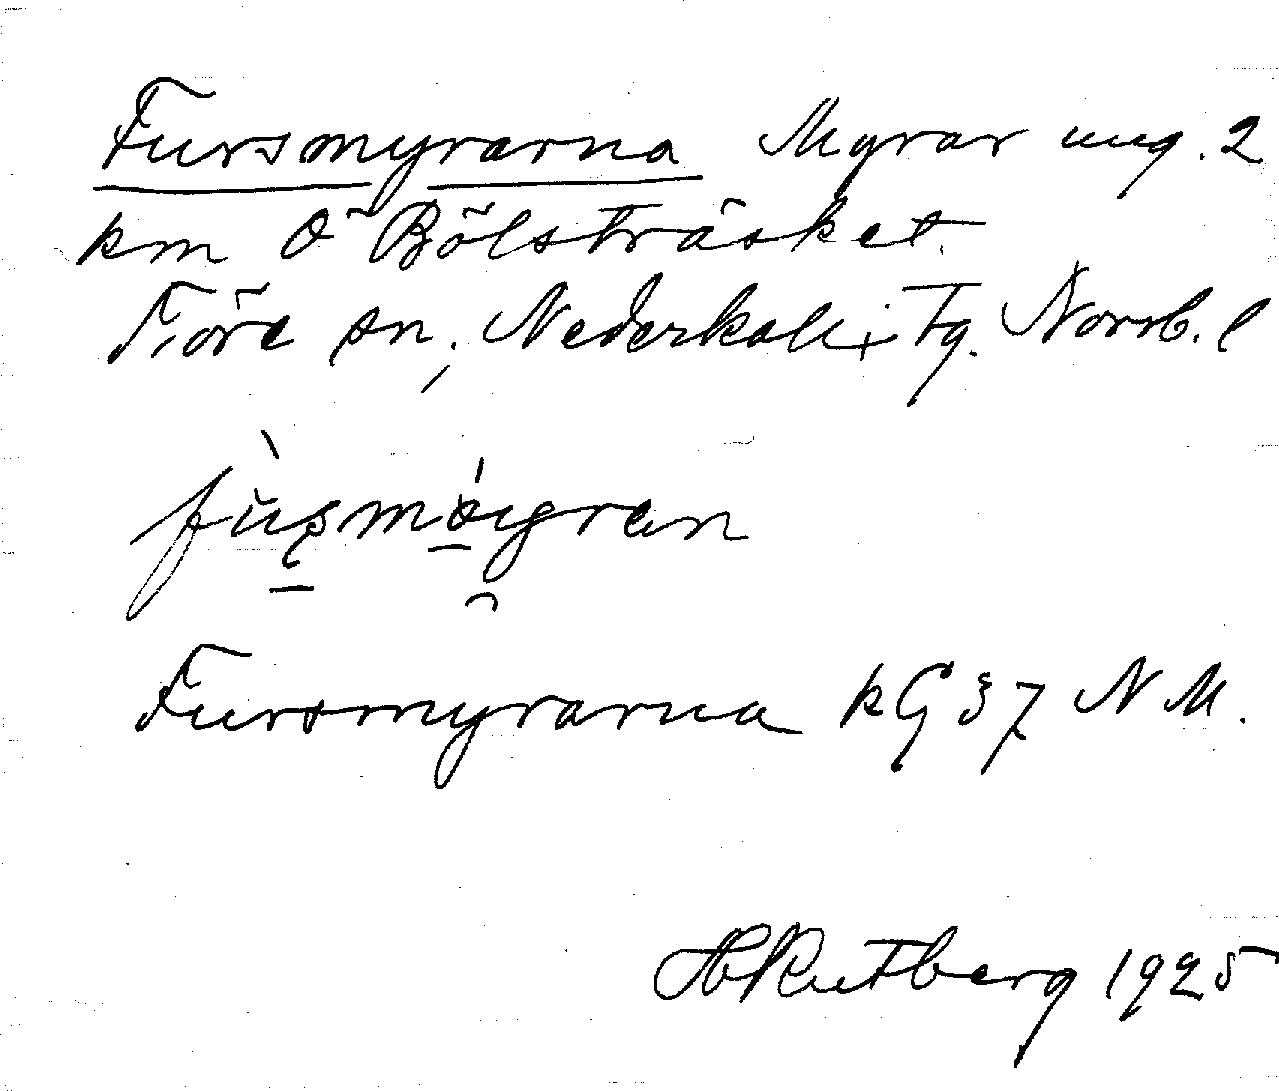 Fursmyrarna Myrar ung. 2
km Ö Bölsträsket.
Töre sn, Nederkalix Tg. Norrb. l
Fursmyrarna kG 37 NM.
H Rutberg 1925